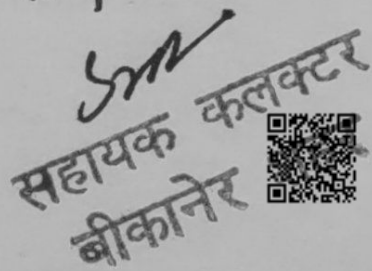 सहायक कलक्टर
बीकानेर